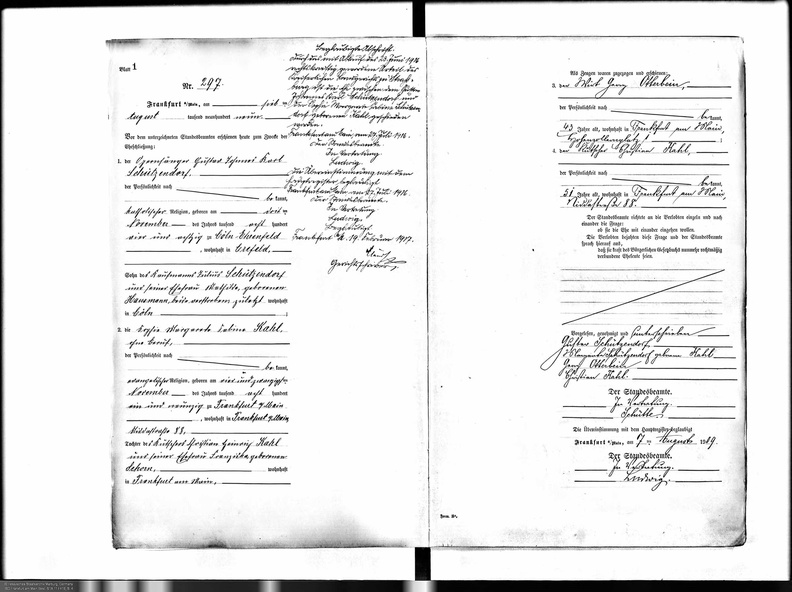 Blatt 1
Nr. 297.
Frankfurt a/Main, am sieb
August tausend neunhundert neun
Vor dem unterzeichneten Standesbeamten erschienen heute zum Zwecke der
Eheschließung:
1. der Opernsänger Gustav Karl
Schützendorf,
der Persönlichkeit nach
be kannt,
katholischer Religion, geboren am
November des Jahres tausend acht hundert
vier und achtzig zu Cöln-Ehrenfeld
, wohnhaft in Crefeld,
Sohn des Kaufmanns Julius Schützendorf
und seiner Ehefrau Mathilde, geborenen
Hausmann, beide verstorben, zuletzt wohnhaft
in Cöln ;
2. die Sophie Margarete Sabine Kahl,
ohne Beruf,
der Persönlichkeit nach
be kannt,
evangelischer Religion, geboren am vier und zwanzigsten
November des Jahres tausend acht hundert
ein und neunzig zu Frankfurt a/Main
, wohnhaft in Frankfurt a/Main
Niddastraße 88,
Tochter des Kutschers Christian Heinrich Kahl
und seiner Ehefrau Franziska, geborenen
wohnhaft
in Frankfurt am Main,
Beglaubigte Abschrift.
Durch das mit Ablauf des 23. Juni 1916
rechtskräftig gewordene Urteil des
Königlichen Landgerichts zu
ist die Ehe zwischen dem Gustav
Johannes Karl Schützendorf und
der Sophie Margarete Sabine Schützen-
dorf geborenen Kahl geschieden
worden.
Frankfurt am Main, am 27. Juli 1916.
Der Standesbeamte.
In Vertretung
Ludwig.
Die Übereinstimmung mit dem
Hauptregister beglaubigt
Frankfurt am Main, am 27. Juli 1916.
Der Standesbeamte.
In Vertretung
Ludwig.
Beglaubigt.
Frankfurt a. M. 19. Februar 1917.
Gerichtsschreiber
Als Zeugen waren zugezogen und erschienen:
3. der Wirt Georg Otterbein,
der Persönlichkeit nach
be kannt,
43 Jahre alt, wohnhaft in Frankfurt am Main,
Hohenzollernplatz ;
4. der Kutscher Christian Kahl,
der Persönlichkeit nach
be kannt,
51 Jahre alt, wohnhaft in Frankfurt am Main,
Niddastraße 88.
Der Standesbeamte richtete an die Verlobten einzeln und nach
einander die Frage:
ob sie die Ehe mit einander eingehen wollen.
Die Verlobten bejahten diese Frage und der Standesbeamte
sprach hierauf aus,
daß sie kraft des Bürgerlichen Gesetzbuchs nunmehr rechtmäßig
verbundene Eheleute seien.
Vorgelesen, genehmigt und unterschrieben
Gustav Schützendorf
Margarete Schützendorf geborene Kahl
Georg Otterbein
Christian Kahl.
Der Standesbeamte.
In Vertretung.
Schütte
Die Übereinstimmung mit dem Hauptregister beglaubigt
Frankfurt a/Main, am 7ten August 1909.
Der Standesbeamte.
In Vertretung.
Ludwig.